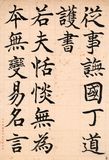 從事譙國丁道
護書
若夫恬惔無為
本無變易名言